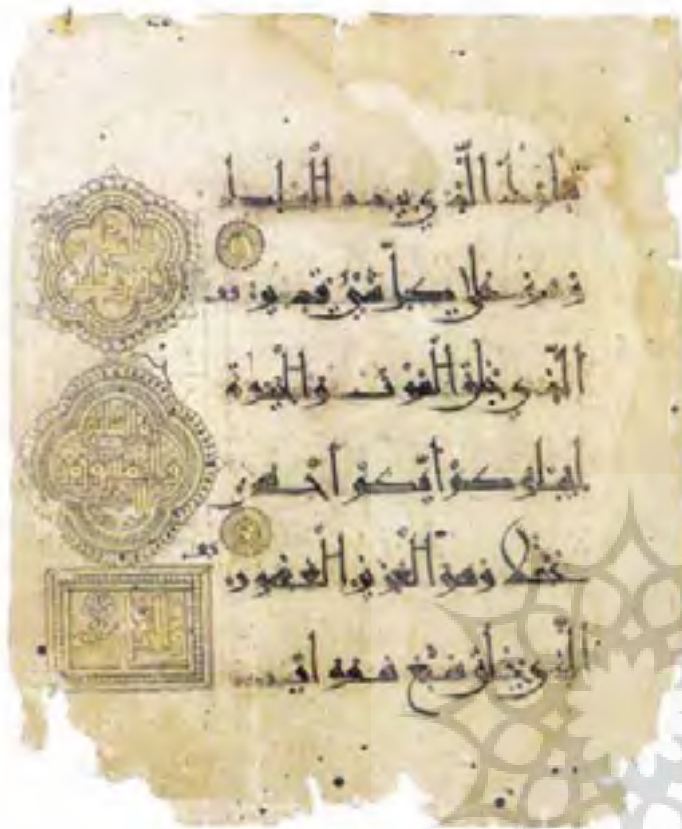 تبارك الذي بيده الملك
وهو على كل شيء قدير
الذي خلق الموت والحيوة
ليبلوكم أيكم أحسن
عملا وهو العزيز الغفور
الذي خلق سبع سموات